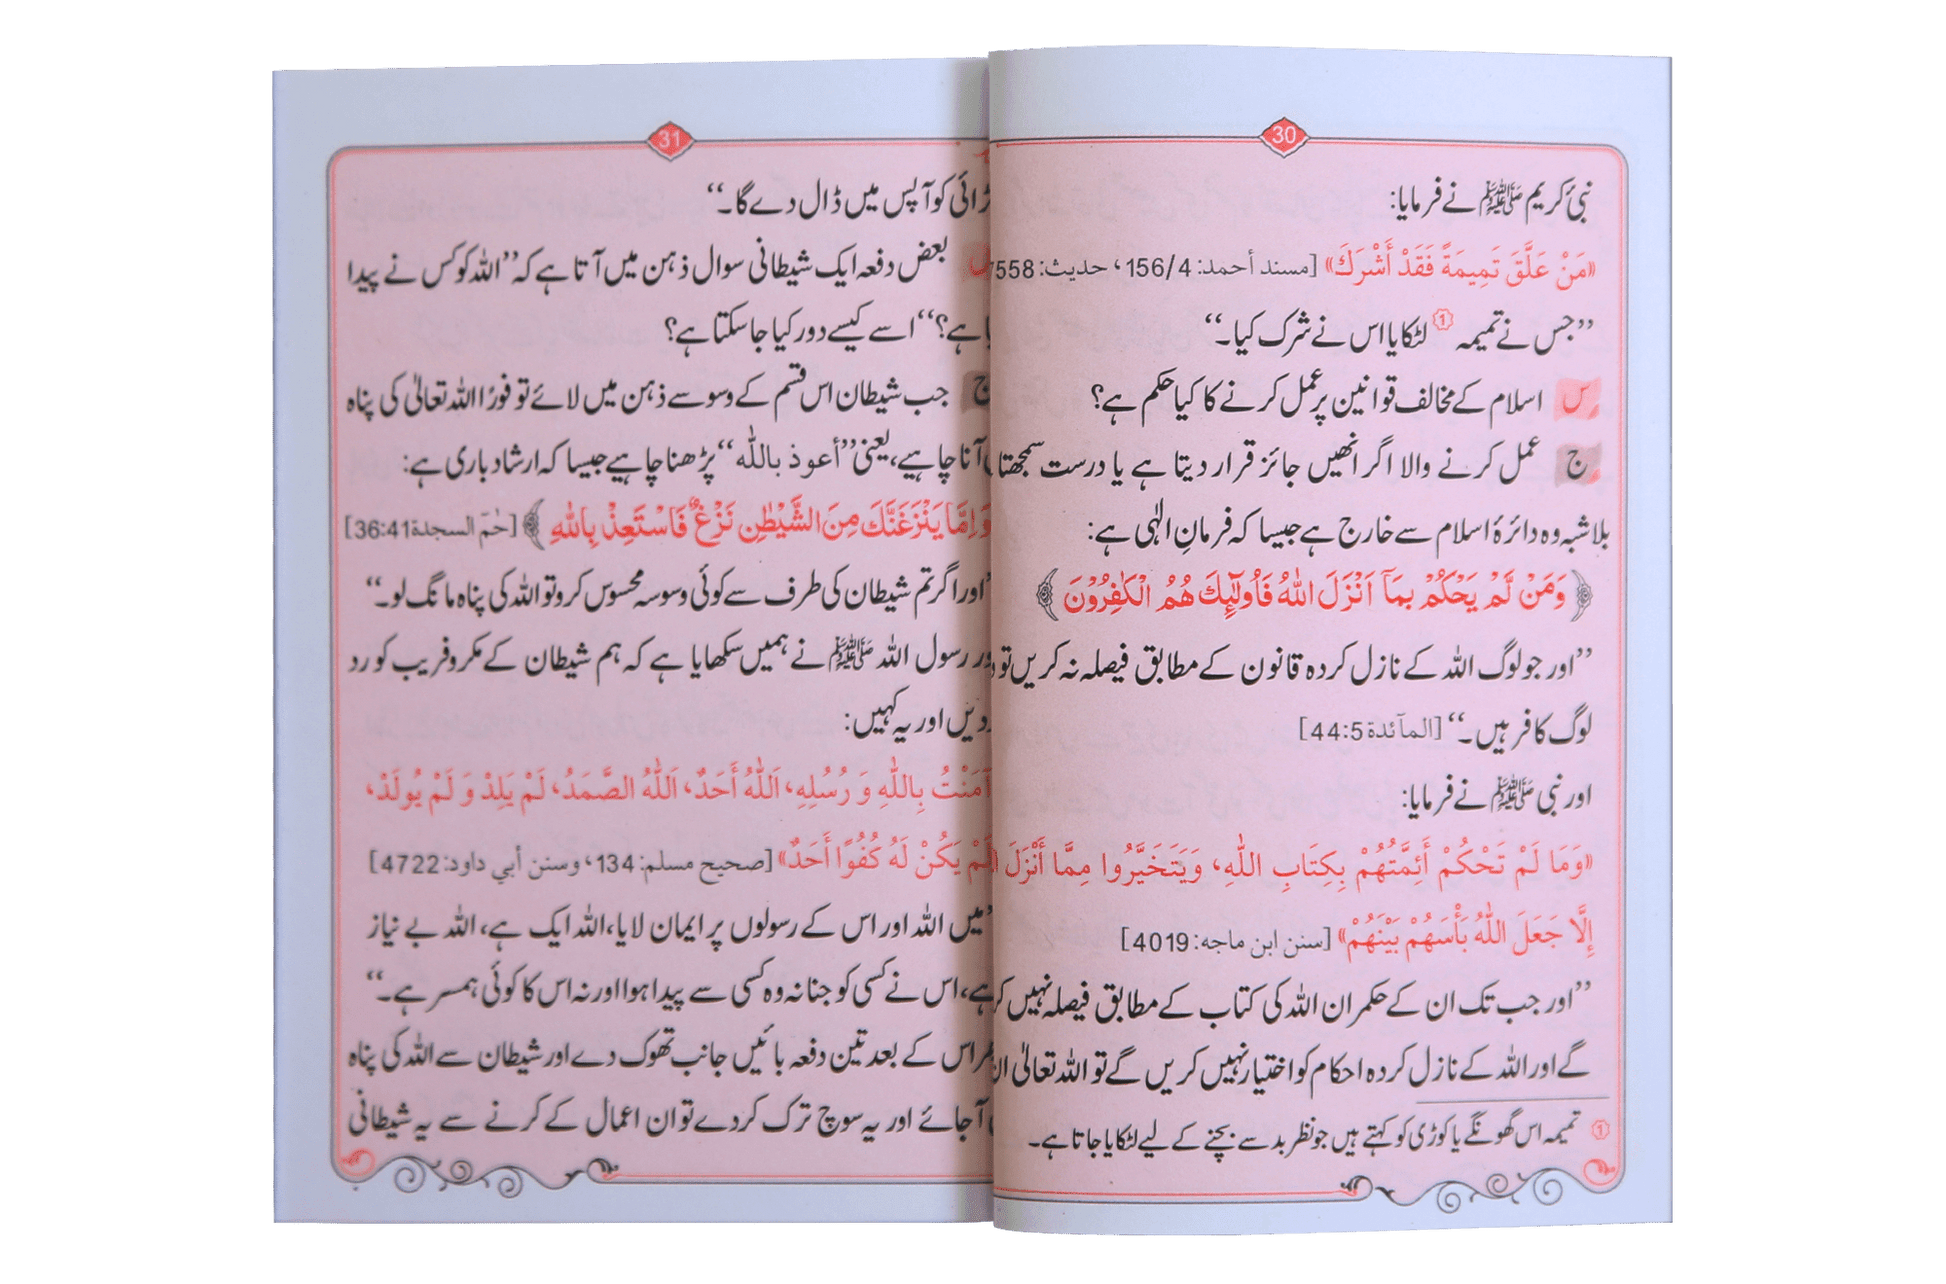 30
نبیٔ کریم ﷺ نے فرمایا:
«مَنْ عَلَّقَ تَمِيمَةً فَقَدْ أَشْرَكَ» [مسند أحمد: 156/4، حديث: 7558
’’جس نے تمیمہ ① لٹکایا اس نے شرک کیا۔‘‘
س اسلام کے مخالف قوانین پر عمل کرنے کا کیا حکم ہے؟
ج عمل کرنے والا اگر انھیں جائز قرار دیتا ہے یا درست سمجھتا
بلاشبہ وہ دائرۂ اسلام سے خارج ہے جیسا کہ فرمانِ الٰہی ہے:
﴿وَمَنْ لَّمْ يَحْكُمْ بِمَآ اَنْزَلَ اللّٰهُ فَاُولٰٓئِكَ هُمُ الْكٰفِرُوْنَ﴾
’’اور جو لوگ اللہ کے نازل کردہ قانون کے مطابق فیصلہ نہ کریں تو
لوگ کافر ہیں۔‘‘ [المآئدة 44:5]
اور نبی ﷺ نے فرمایا:
«وَمَا لَمْ تَحْكُمْ أَئِمَّتُهُمْ بِكِتَابِ اللّٰهِ، وَيَتَخَيَّرُوا مِمَّا أَنْزَلَ
إِلَّا جَعَلَ اللّٰهُ بَأْسَهُمْ بَيْنَهُمْ» [سنن ابن ماجه: 4019]
’’اور جب تک ان کے حکمران اللہ کی کتاب کے مطابق فیصلہ نہیں
گے اور اللہ کے نازل کردہ احکام کو اختیار نہیں کریں گے تو اللہ تعالیٰ ان
① تمیمہ اس گھونگے یا کوڑی کو کہتے ہیں جو نظر بد سے بچنے کے لیے لٹکایا جاتا ہے۔
31
کو آپس میں ڈال دے گا۔‘‘
س بعض دفعہ ایک شیطانی سوال ذہن میں آتا ہے کہ ’’اللہ کو کس نے پیدا
ہے؟‘‘ اسے کیسے دور کیا جا سکتا ہے؟
ج جب شیطان اس قسم کے وسوسے ذہن میں لائے تو فورًا اللہ تعالیٰ کی پناہ
آنا چاہیے، یعنی ’’أعوذ باللّٰه‘‘ پڑھنا چاہیے جیسا کہ ارشاد باری ہے:
وَاِمَّا يَنْزَغَنَّكَ مِنَ الشَّيْطٰنِ نَزْغٌ فَاسْتَعِذْ بِاللّٰهِ﴾ [حٰمٓ السجدة 36:41]
’اور اگر تم شیطان کی طرف سے کوئی وسوسہ محسوس کرو تو اللہ کی پناہ مانگ لو۔‘‘
رسول اللہ ﷺ نے ہمیں سکھایا ہے کہ ہم شیطان کے مکر و فریب کو رد
دیں اور یہ کہیں:
آمَنْتُ بِاللّٰهِ وَ رُسُلِهِ، اَللّٰهُ أَحَدٌ، اَللّٰهُ الصَّمَدُ، لَمْ يَلِدْ وَ لَمْ يُولَدْ،
لَمْ يَكُنْ لَهُ كُفُوًا أَحَدٌ» [صحيح مسلم: 134، وسنن أبي داود: 4722]
’میں اللہ اور اس کے رسولوں پر ایمان لایا، اللہ ایک ہے، اللہ بے نیاز
ہے، اس نے کسی کو جنا نہ وہ کسی سے پیدا ہوا اور نہ اس کا کوئی ہمسر ہے۔‘‘
اس کے بعد تین دفعہ بائیں جانب تھوک دے اور شیطان سے اللہ کی پناہ
آجائے اور یہ سوچ ترک کر دے تو ان اعمال کے کرنے سے یہ شیطانی